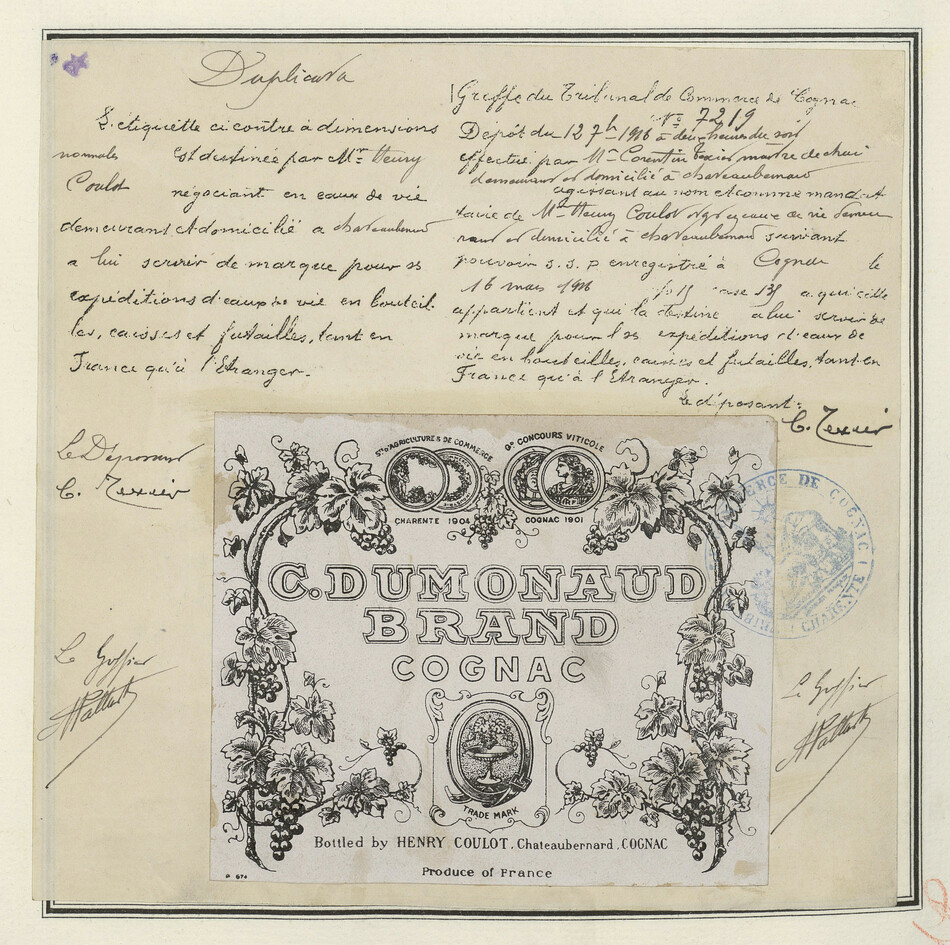 Duplicata
L'etiquette ci contre à dimensions
normales est destinée par Mr Henry
Coulot négociant en eaux de vie
demeurant et domicilié a chateaubernard
a lui servir de marque pour ses
expéditions d'eaux de vie en bouteil-
les, caisses et futailles, tant en
France qu'à l'Etranger.
Le Déposant
C. Texier
Le Greffier
Greffe du Tribunal de Commerce de Cognac
No 7219
Dépôt du 12 7b 1916 à deux heures du soir
effectué par Mr Corentin Texier maitre de chai
demeurant et domicilié à chateaubernard
agissant au nom et comme manda-
taire de Mr Henry Coulot eaux de vie demeu
rant et domicilié à chateaubernard suivant
pouvoir s.s.p enregistré à Cognac le
16 mars 1916 a qui elle
appartient et qui la destine a lui servir de
marque pour ses expéditions d'eaux de
vie en bouteilles, caisses et futailles, tant en
France qu'à l'Etranger.
Le déposant:
C. Texier
STÉ D'AGRICULTURE & DE COMMERCE
CHARENTE 1904
GD CONCOURS VITICOLE
COGNAC 1901
C. DUMONAUD
BRAND
COGNAC
TRADE MARK
Bottled by HENRY COULOT. Chateaubernard. COGNAC
Produce of France
P 674
ERCE DE COGNAC
CHARENTE
Le Greffier